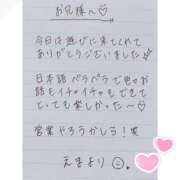 お兄様へ♡
今日は遊びに来てくれて
ありがとうございました
日本語ペラペラで色々お
話もイチャイチャもできて
とっても楽しかった〜♡
営業やろうかしら!笑
えまより